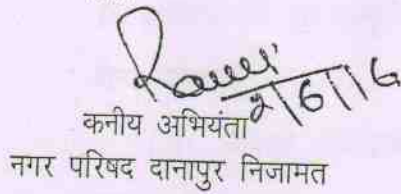 2/6/16
कनीय अभियंता
नगर परिषद दानापुर निजामत